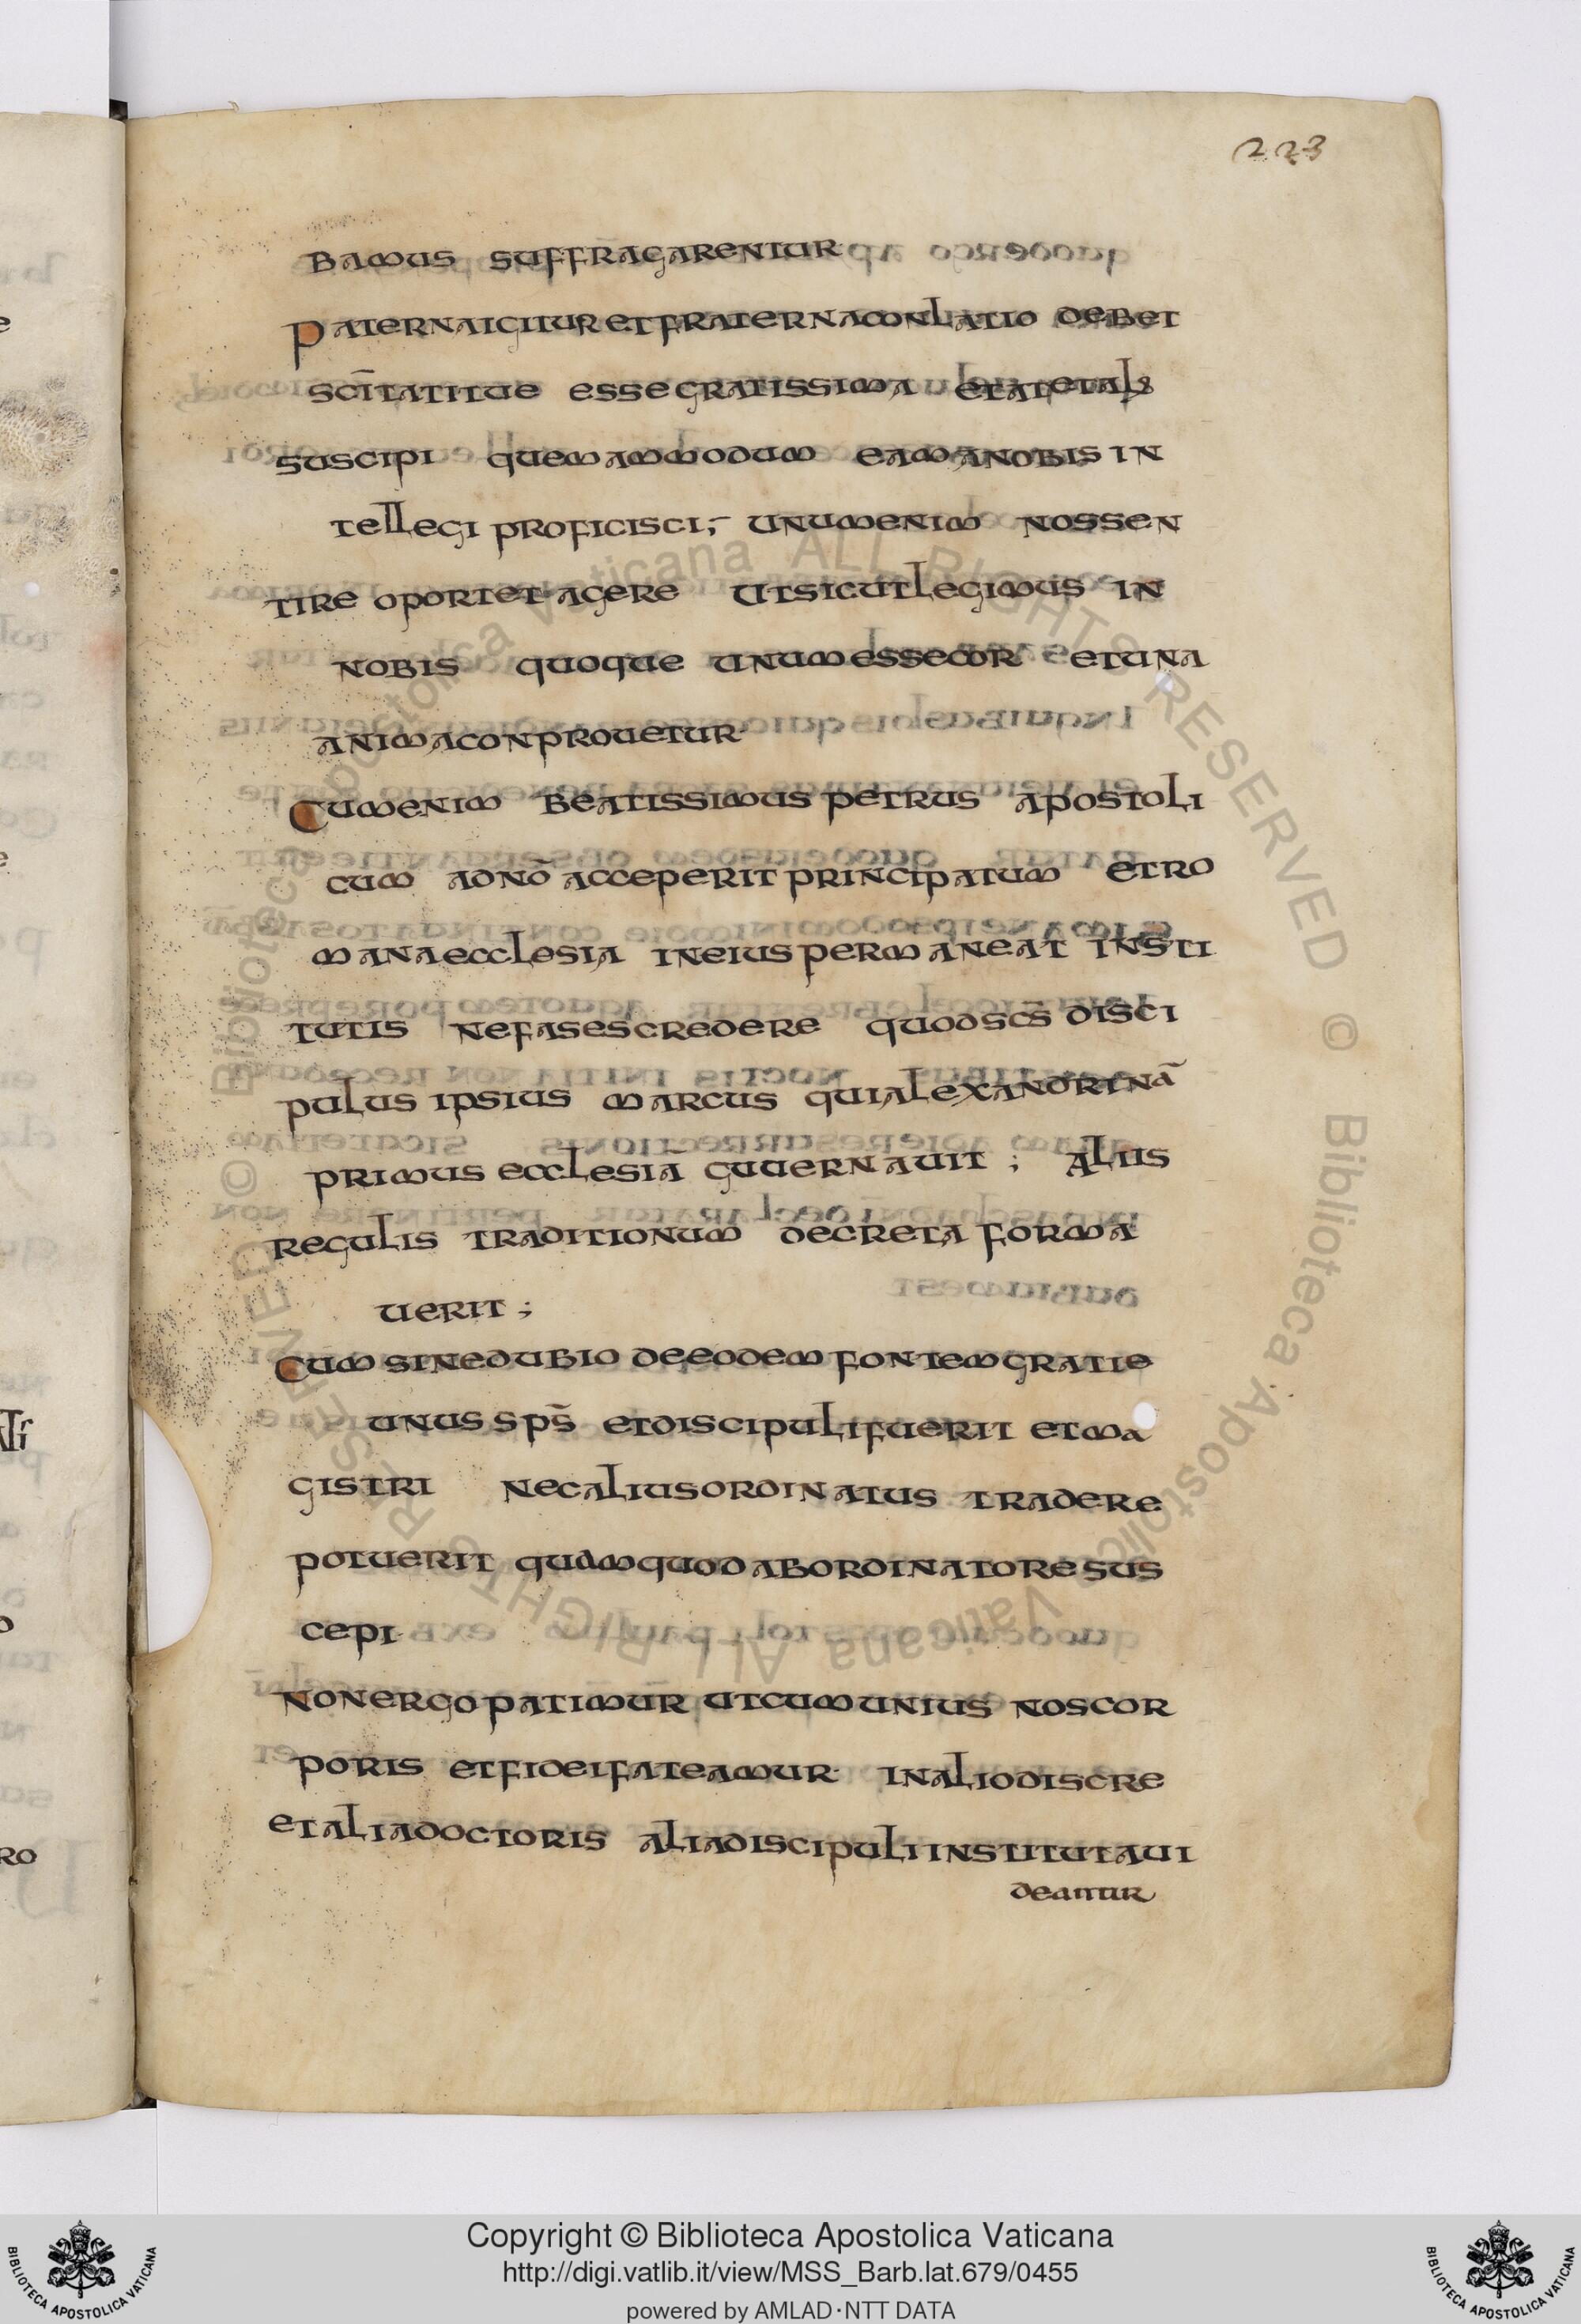 223
bamus suffragarentur
Paterna igitur et fraterna conlatio debet
scītati tue esse gratissima et at et als
suscipi quemammodum eam a nobis in
tellegi proficisci; unum enim nos sen
tire oportet agere ut sicut legimus in
nobis quoque unum esse cor et una
anima conprouetur
Cum enim beatissimus petrus apostoli
cum ad nō acceperit principatum et ro
mana ecclesia in eius permaneat insti
tutis nefas es credere quod scs̄ disci
pulus ipsius marcus qui alexandrinā
primus ecclesiā guuernauit ; aliis
regulis traditionum decreta forma
uerit ;
Cum sine dubio de eodem fontem gratie
unus sps̄ et discipuli fuerit et ma
gistri nec alius ordinatus tradere
potuerit quam quod ab ordinatore sus
cepi
Non ergo patimur ut cum unius nos cor
poris et fidei fateamur in alio discre
et alia doctoris alia discipuli instituta ui
deantur
Copyright © Biblioteca Apostolica Vaticana
http://digi.vatlib.it/view/MSS_Barb.lat.679/0455
powered by AMLAD·NTT DATA
BIBLIOTECA APOSTOLICA VATICANA
BIBLIOTECA APOSTOLICA VATICANA
© Biblioteca Apostolica Vaticana ALL RIGHTS RESERVED © Biblioteca Apostolica Vaticana ALL RIGHTS RESERVED